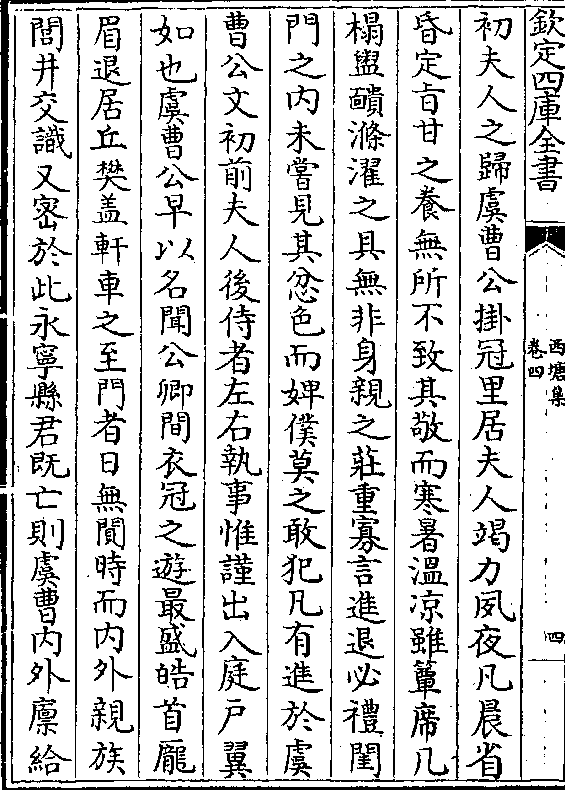 欽定四庫全書
西塘集
卷四
四
初夫人之歸虞曹公掛冠里居夫人竭力夙夜凡晨省
昏定㫖甘之養無所不致其敬而寒暑溫凉雖簟席几
榻盥頮滌濯之具無非身親之莊重寡言進退必禮閨
門之内未嘗見其忿色而婢僕莫之敢犯凡有進於虞
曹公文初前夫人後侍者左右執事惟謹出入庭戶翼
如也虞曹公早以名聞公卿間衣冠之遊最盛皓首龎
眉退居丘樊盖軒車之至門者日無閒時而内外親族
閭井交識又宻於此永寧縣君既亡則虞曹内外廩給